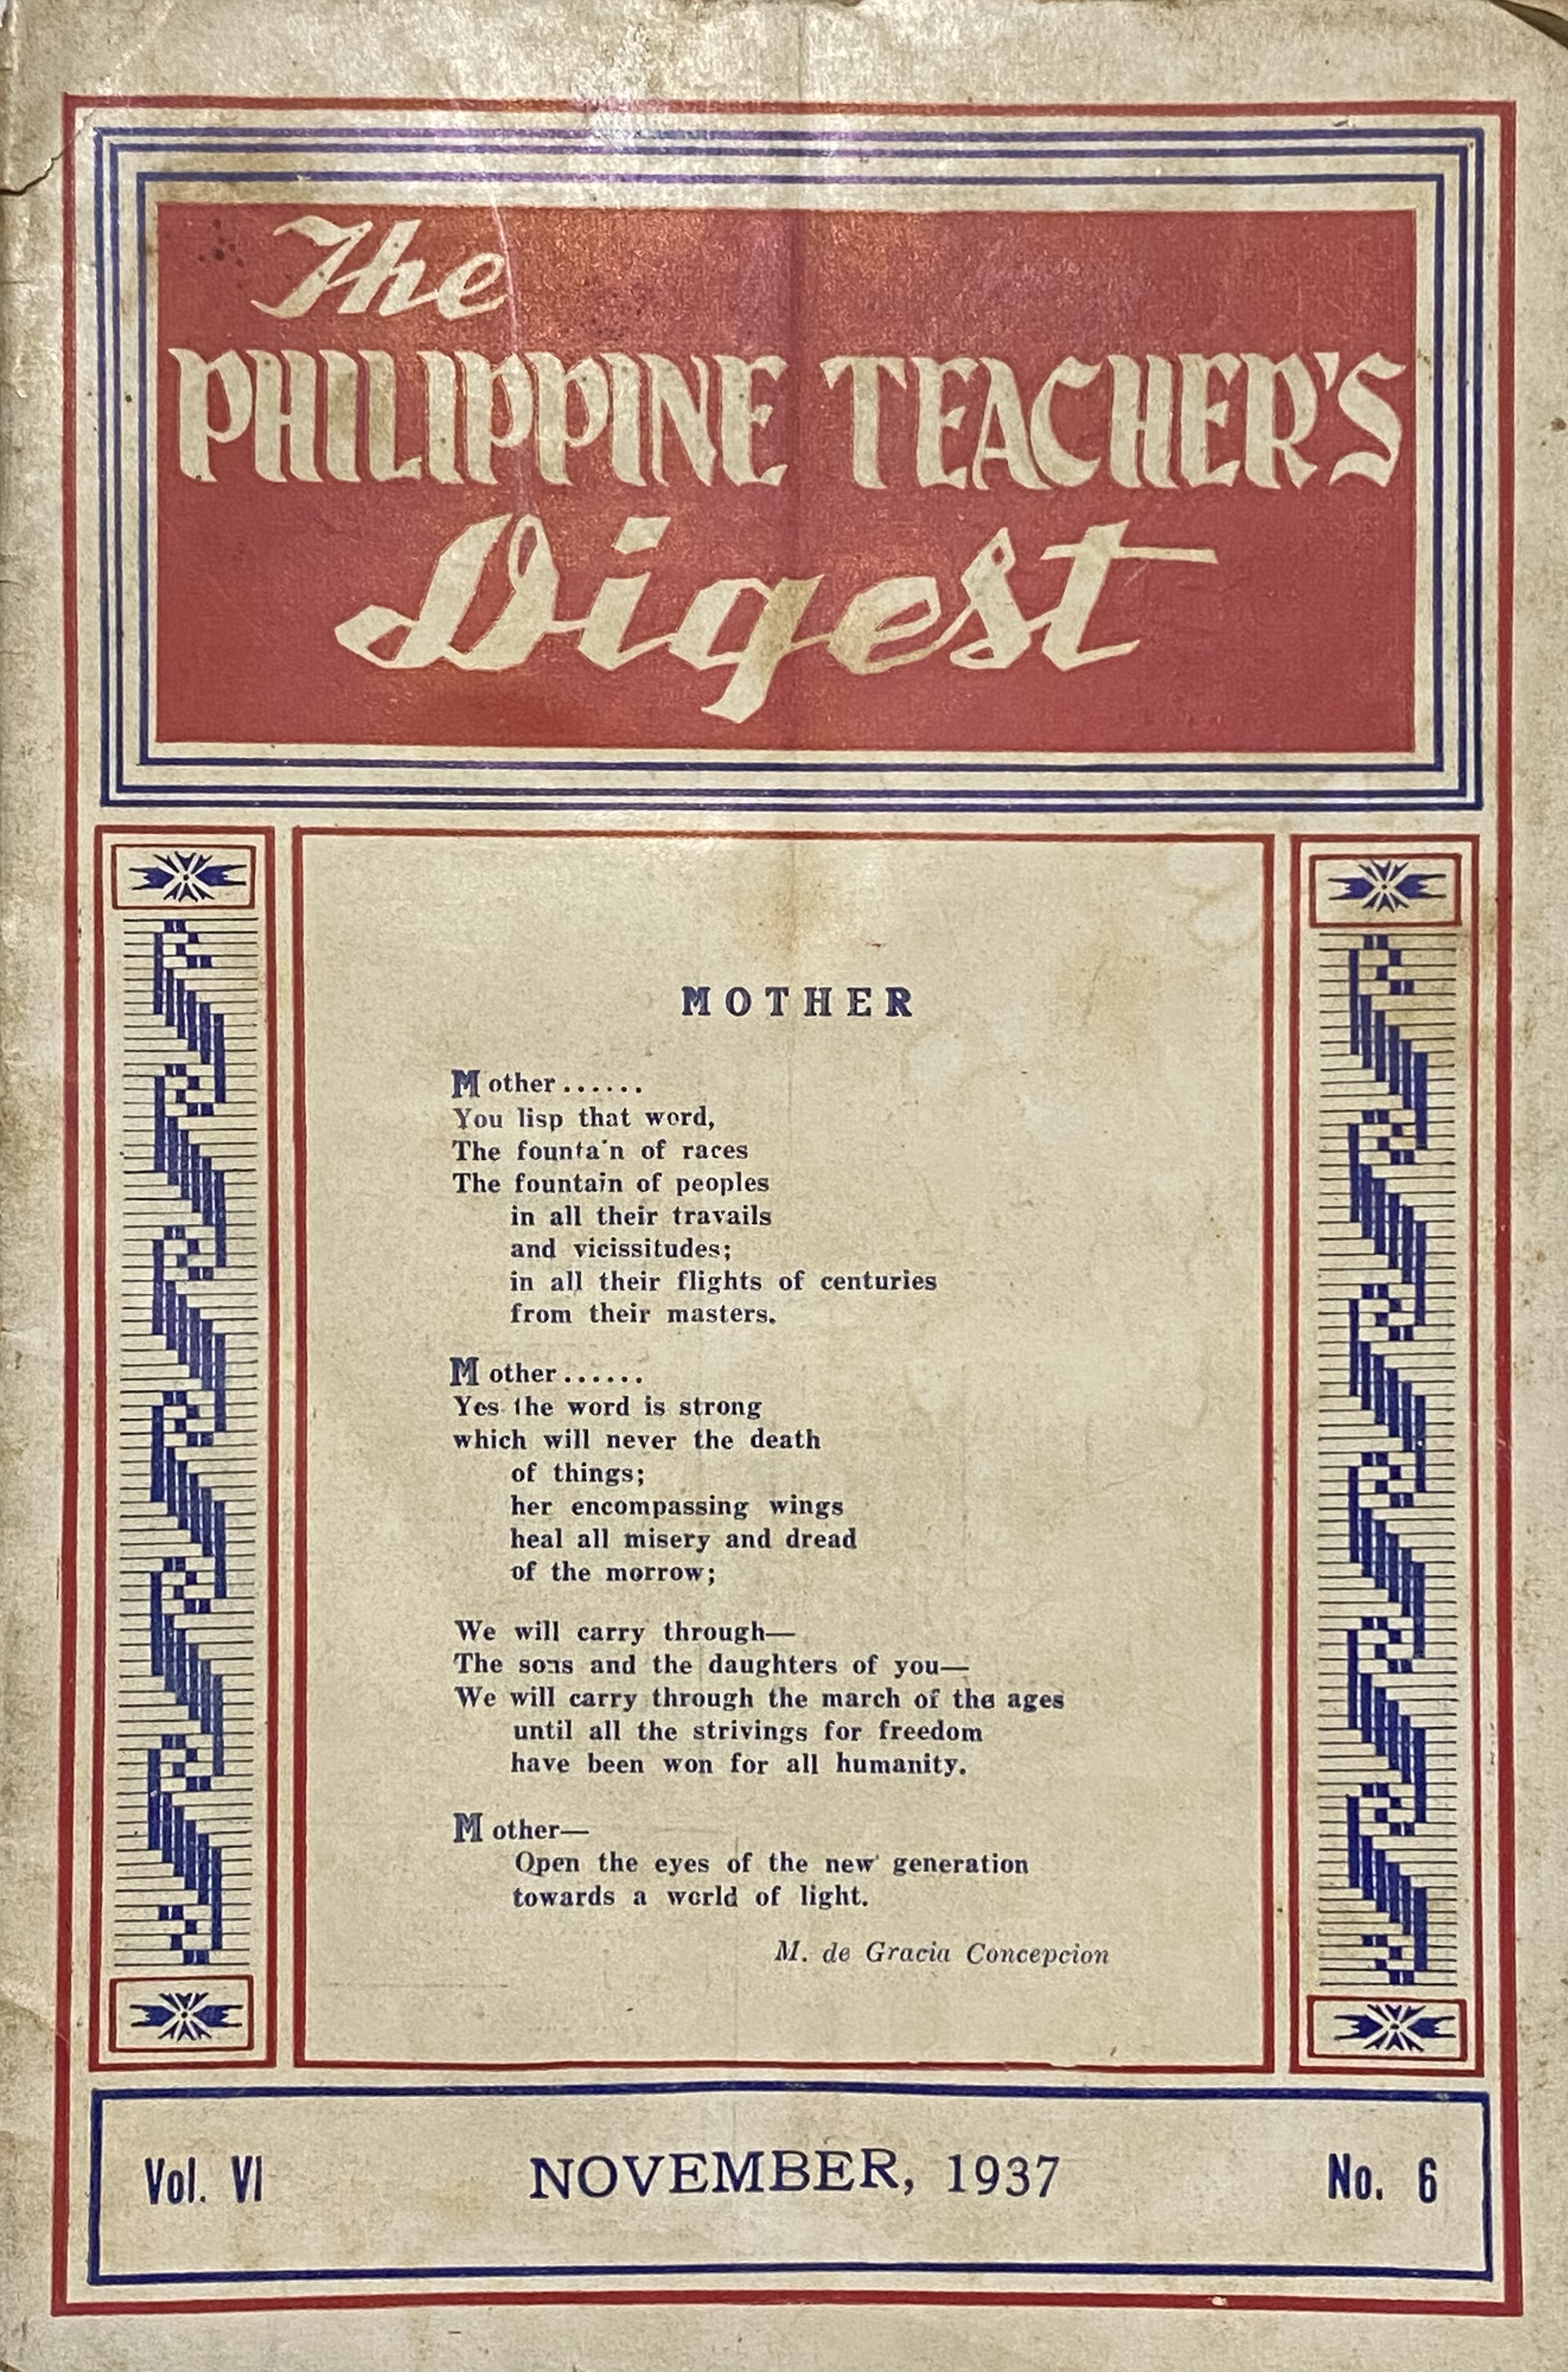 The
PHILIPPINE TEACHER'S
Digest
MOTHER
Mother......
You lisp that word,
The fountain of races
The fountain of peoples
in all their travails
and vicissitudes;
in all their flights of centuries
from their masters.
Mother......
Yes the word is strong
which will never the death
of things;
her encompassing wings
heal all misery and dread
of the morrow;
We will carry through—
The sons and the daughters of you—
We will carry through the march of the ages
until all the strivings for freedom
have been won for all humanity.
Mother—
Open the eyes of the new generation
towards a world of light.
M. de Gracia Concepcion
Vol. VI NOVEMBER, 1937 No. 6